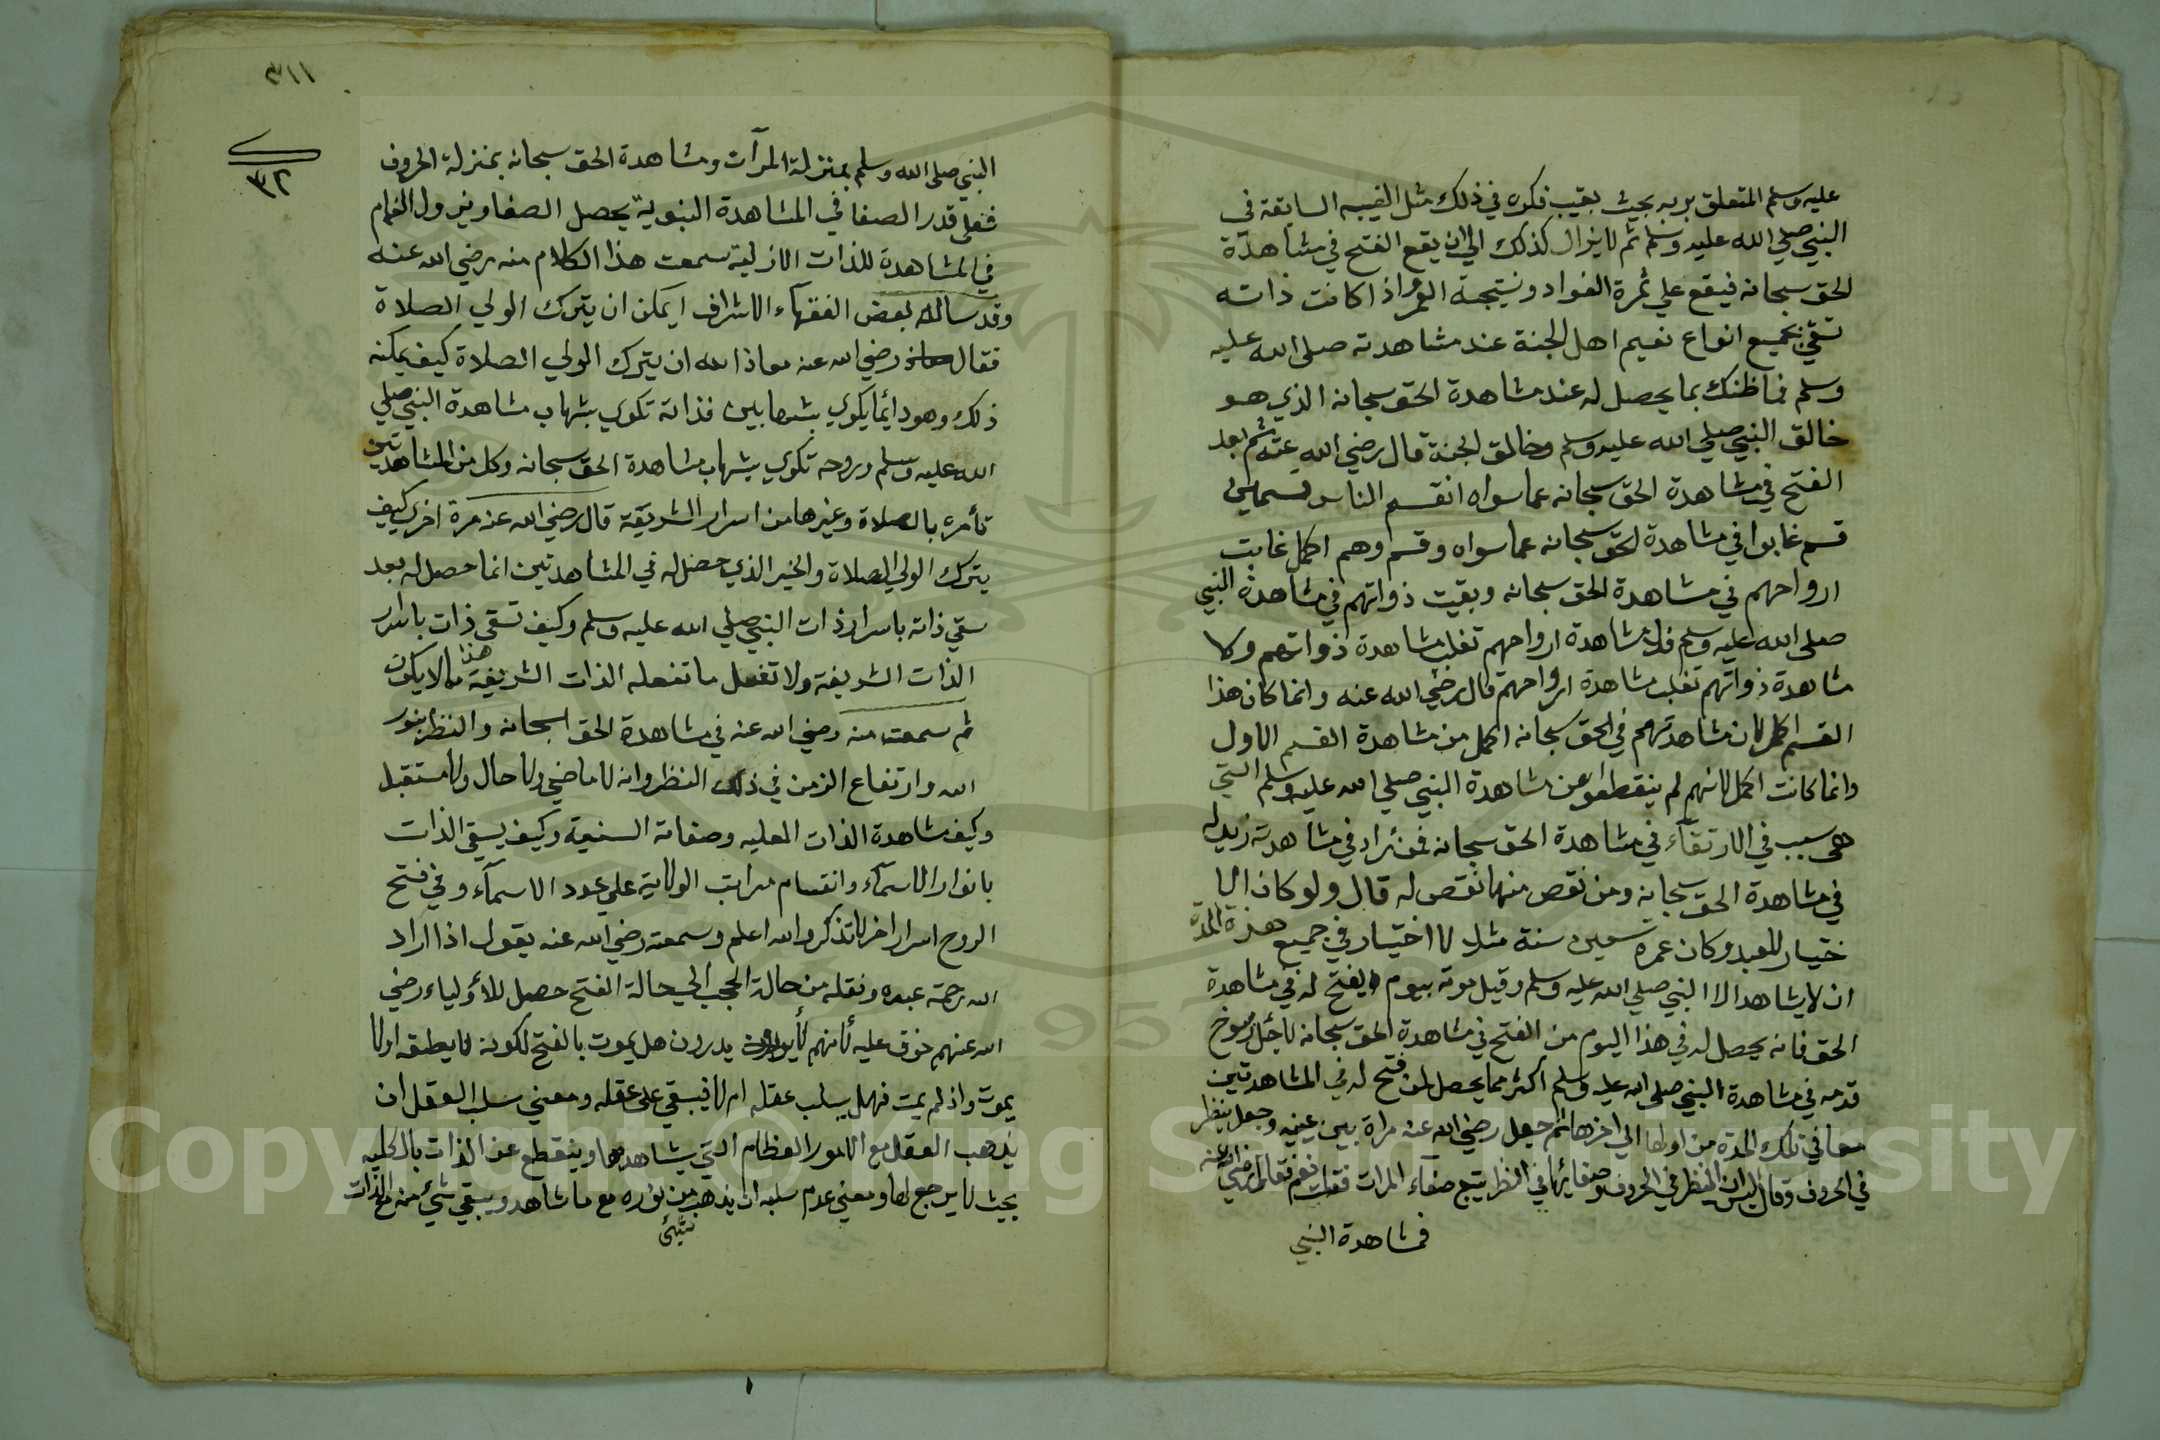 عليه وسلم المتعلق بربه بحيث يغيب فكره في ذلك مثل الغيبه السابقة في
النبي صلي الله عليه وسلم ثم لا يزال كذلك الي ان يقع الفتح في مشاهدة
الحق سبحانه فيقع علي ثمرة الفواد ونتيجة العمر واذا كانت ذاته
تسقي بجميع انواع نعيم اهل الجنة عند مشاهدته صلي الله عليه
وسلم فما ظنك بما يحصل له عند مشاهدة الحق سبحانه الذي هو
خالق النبي صلي الله عليه وسلم وخالق الجنة قال رضي الله عنه ثم بعد
الفتح في مشاهدة الحق سبحانه عما سواه انقسم الناس قسمين
قسم غابوا في مشاهدة الحق سبحانه عما سواه وقسم وهم اكمل غابت
ارواحهم في مشاهدة الحق سبحانه وبقيت ذواتهم في مشاهدة النبي
صلي الله عليه وسلم فلا مشاهدة ارواحهم تغلب مشاهدة ذواتهم ولا
مشاهدة ذواتهم تغلب مشاهدة ارواحهم قال رضي الله عنه وانما كان هذا
القسم اكمل لان مشاهدتهم في الحق سبحانه اكمل من مشاهدة القسم الاول
وانما كانت اكمل لانهم لم ينقطعوا عن مشاهدة النبي صلي الله عليه وسلم التي
هي سبب في الارتقآء في مشاهدة الحق سبحانه فمن زاد في مشاهدته زيد له
في مشاهدة الحق سبحانه ومن نقص منها نقص له قال ولو كان الا
ختيار للعبد وكان عمره تسعين سنة مثلا لا اختار في جميع هذة المدة
ان لا يشاهد الا النبي صلي الله عليه وسلم وقبل موته بيوم يفتح له في مشاهدة
الحق فانه يحصل له في هذا اليوم من الفتح في مشاهدة الحق سبحانه لاجل رسوخ
قدمه في مشاهدة النبي صلي الله عليه وسلم اكثر مما يحصل لمن فتح له في المشاهدتين
معا في تلك المدة من اولها الي اخرها ثم جعل رضي الله عنه مراة بين عينيه وجعل ينظر
في الحروف وقال اليس ان النظر في الحروف وصفائها في النظر يتبع صفآء المرات فقلت نعم فقال رضي الله عنه
فمشاهدة النبي
٣١١
٣٢
النبي صلي الله وسلم بمنزلة المرآت ومشاهدة الحق سبحانه بمنزلة الحروف
فعلي قدر الصفا في المشاهدة النبوية يحصل الصفا ويزول الغمام
في المشاهدة للذات الازلية سمعت هذا الكلام منه رضي الله عنه
وقد ساله بعض الفقهآء الاشراف ايمكن ان يترك الولي الصلاة
فقال رضي الله عنه معاذ الله ان يترك الولي الصلاة كيف يمكنه
ذلك وهو دائما يكوي بشهابين فذاته تكوي بشهاب مشاهدة النبي صلي
الله عليه وسلم وروحه تكوي بشهاب مشاهدة الحق سبحانه وكل من المشاهدتين
تأمره بالصلاة وغيرها من اسرار الشريعة قال رضي الله عنه مرة اخري كيف
يترك الولي الصلاة والخير الذي حصل له في المشاهدتين انما حصل له بعد
سقي ذاته باسرار ذات النبي صلي الله عليه وسلم وكيف تسقي ذات باسرار
الذات الشريفة ولا تفعل ما تفعله الذات الشريفة هذا مالا يكون
ثم سمعت منه رضي الله عنه في مشاهدة الحق سبحانه والنظر بنور
الله وارتفاع الزمن في ذلك النظر وانه لا ماضي ولا حال ولا مستقبل
وكيف مشاهدة الذات العليه وصفاته السنية وكيف يسقي الذات
بانوار الاسمآء وانقسام مراتب الولاية علي عدد الاسمآء وفي فتح
الروح اسرار اخر لا تذكر والله اعلم وسمعته رضي الله عنه يقول اذا اراد
الله رحمة عبده ونقله من حالة الحجب الي حالة الفتح حصل للأولياء رضي
الله عنهم خوف عليه لانهم لا يدرون هل يموت بالفتح لكونه لا يطيقه او لا
يموت واذ لم يمت فهل يسلب عقله ام لا فيبقي علي عقله ومعني سلب العقل ان
يذهب العقل مع الامور العظام التي يشاهدها وينقطع عن الذات بالكليه
بحيث لا يرجع لها ومعني عدم سلبه ان يذهب من نوره مع ما شاهد ويبقي شئ منه مع الذات
شئ
Copyright © King Saud University
1957